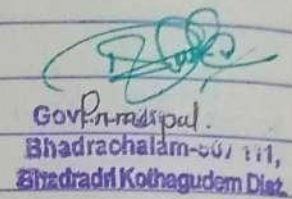 Gov Principal.
Bhadrachalam-507 111,
Bhadradri Kothagudem Dist.